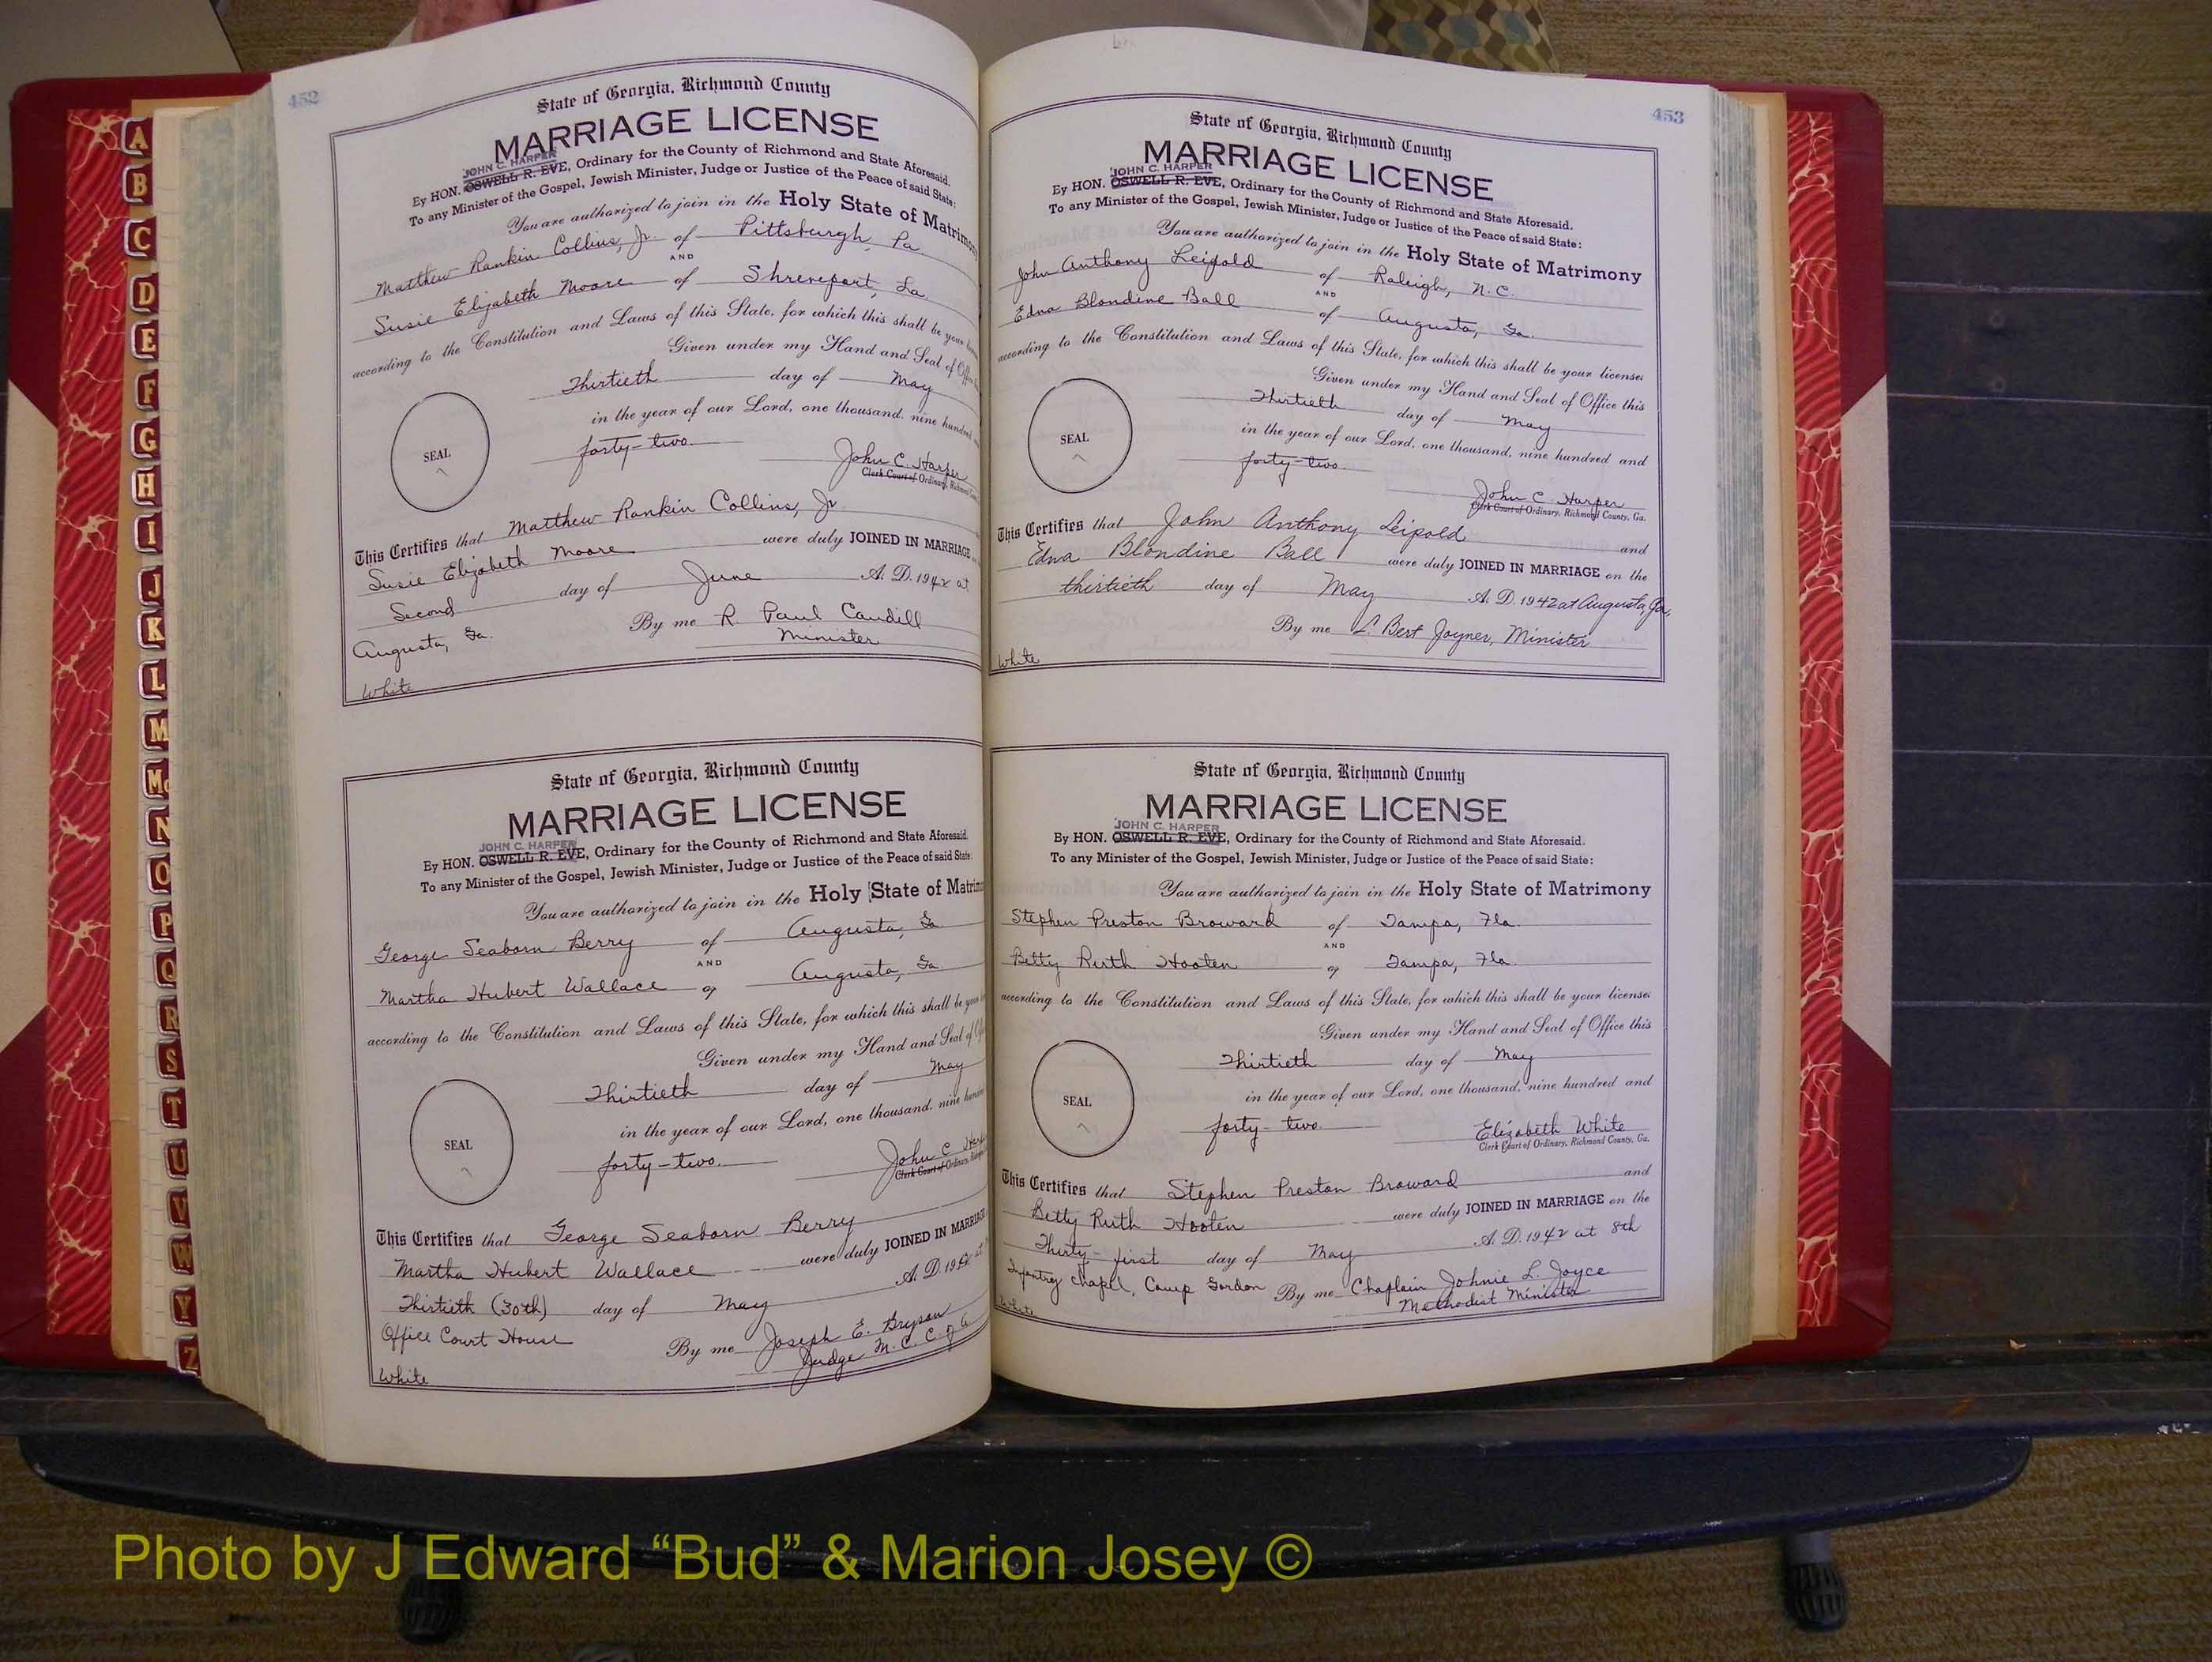 452
State of Georgia, Richmond County
MARRIAGE LICENSE
JOHN C. HARPER
By HON. OSWELL R. EVE, Ordinary for the County of Richmond and State Aforesaid.
To any Minister of the Gospel, Jewish Minister, Judge or Justice of the Peace of said State:
You are authorized to join in the Holy State of Matrimony
Matthew Rankin Collins, Jr. of Pittsburgh, Pa
AND
Susie Elizabeth Moore of Shreveport, La
according to the Constitution and Laws of this State, for which this shall be your
Given under my Hand and Seal of
Thirtieth day of May
in the year of our Lord, one thousand, nine hundred
SEAL
forty-two
John C. Harper
Clerk Court of Ordinary, Richmond
This Certifies that Matthew Rankin Collins, Jr
Susie Elizabeth Moore were duly JOINED IN MARRIAGE
Second day of June A. D. 1942 at
Augusta, Ga. By me R. Paul Caudill
Minister
White
State of Georgia, Richmond County
MARRIAGE LICENSE
JOHN C. HARPER
By HON. OSWELL R. EVE, Ordinary for the County of Richmond and State Aforesaid.
To any Minister of the Gospel, Jewish Minister, Judge or Justice of the Peace of said State:
You are authorized to join in the Holy State of
George Seaborn Berry of Augusta, Ga
AND
Martha Hubert Wallace of Augusta, Ga
according to the Constitution and Laws of this State, for which this shall be your
Given under my Hand and Seal of
Thirtieth day of May
in the year of our Lord, one thousand, nine
SEAL
forty-two.
John C
Clerk Court of Ordinary,
This Certifies that George Seaborn Berry
Martha Hubert Wallace were duly JOINED IN MARRIAGE
Thirtieth (30th) day of May A. D. 1942 at
Office Court House By me Joseph E. Bryson
Judge M. C. C. of A
White
453
State of Georgia, Richmond County
MARRIAGE LICENSE
JOHN C. HARPER
By HON. OSWELL R. EVE, Ordinary for the County of Richmond and State Aforesaid.
To any Minister of the Gospel, Jewish Minister, Judge or Justice of the Peace of said State:
You are authorized to join in the Holy State of Matrimony
John Anthony Leipold of Raleigh, N.C.
AND
Edna Blondine Ball of Augusta, Ga.
according to the Constitution and Laws of this State, for which this shall be your license:
Given under my Hand and Seal of Office this
Thirtieth day of May
in the year of our Lord, one thousand, nine hundred and
SEAL
forty-two
John C. Harper
Clerk Court of Ordinary, Richmond County, Ga.
This Certifies that John Anthony Leipold and
Edna Blondine Ball were duly JOINED IN MARRIAGE on the
thirtieth day of May A. D. 1942 at Augusta, Ga.
By me L. Bert Joyner, Minister
White
State of Georgia, Richmond County
MARRIAGE LICENSE
JOHN C. HARPER
By HON. OSWELL R. EVE, Ordinary for the County of Richmond and State Aforesaid.
To any Minister of the Gospel, Jewish Minister, Judge or Justice of the Peace of said State:
You are authorized to join in the Holy State of Matrimony
Stephen Preston Broward of Tampa, Fla.
AND
Betty Ruth Hooten of Tampa, Fla.
according to the Constitution and Laws of this State, for which this shall be your license:
Given under my Hand and Seal of Office this
Thirtieth day of May
in the year of our Lord, one thousand, nine hundred and
SEAL
forty-two.
Elizabeth White
Clerk Court of Ordinary, Richmond County, Ga.
This Certifies that Stephen Preston Broward and
Betty Ruth Hooten were duly JOINED IN MARRIAGE on the
Thirty-first day of May A. D. 1942 at 8th
Infantry Chapel, Camp Gordon By me Chaplain Johnie L. Joyce
Methodist Minister
White
A
B
C
D
E
F
G
H
I
J
K
L
M
Mc
N
O
P
Q
R
S
T
U
V
W
Y
Z
Photo by J Edward “Bud” & Marion Josey ©